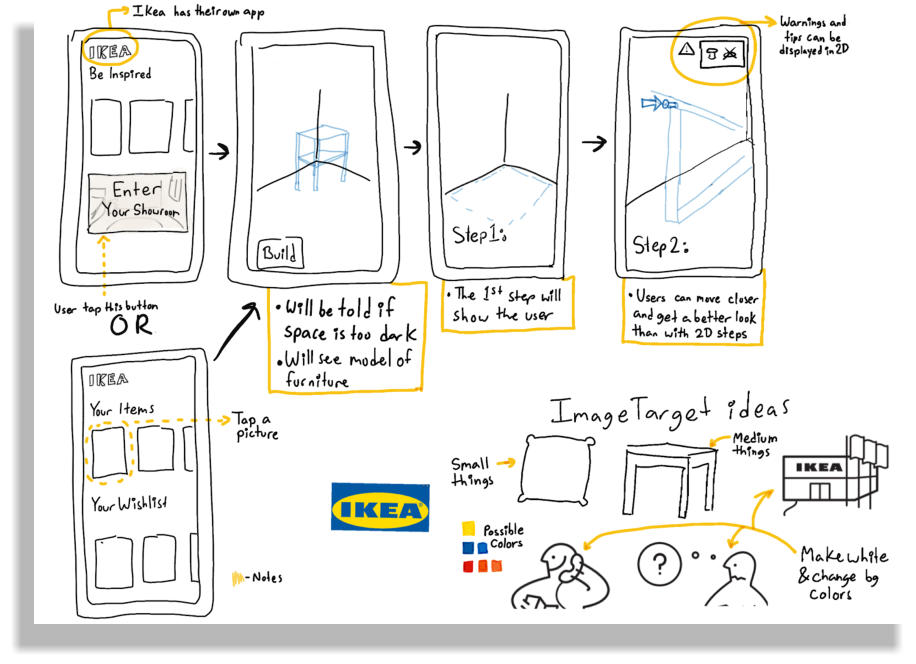 IKea has their own app
IKEA
Be Inspired
Enter
Your Showroom
User tap this button
OR
Build
• Will be told if
space is too dark
• Will see model of
furniture
Step 1:
• The 1st step will
show the user
Warnings and
tips can be
displayed in 2D
Step 2:
• Users can move closer
and get a better look
than with 2D steps
IKEA
Your Items
Tap a
picture
Your Wishlist
- Notes
IKEA
ImageTarget ideas
Small
things
Medium
things
IKEA
Possible
Colors
?
Make white
& change bg
colors